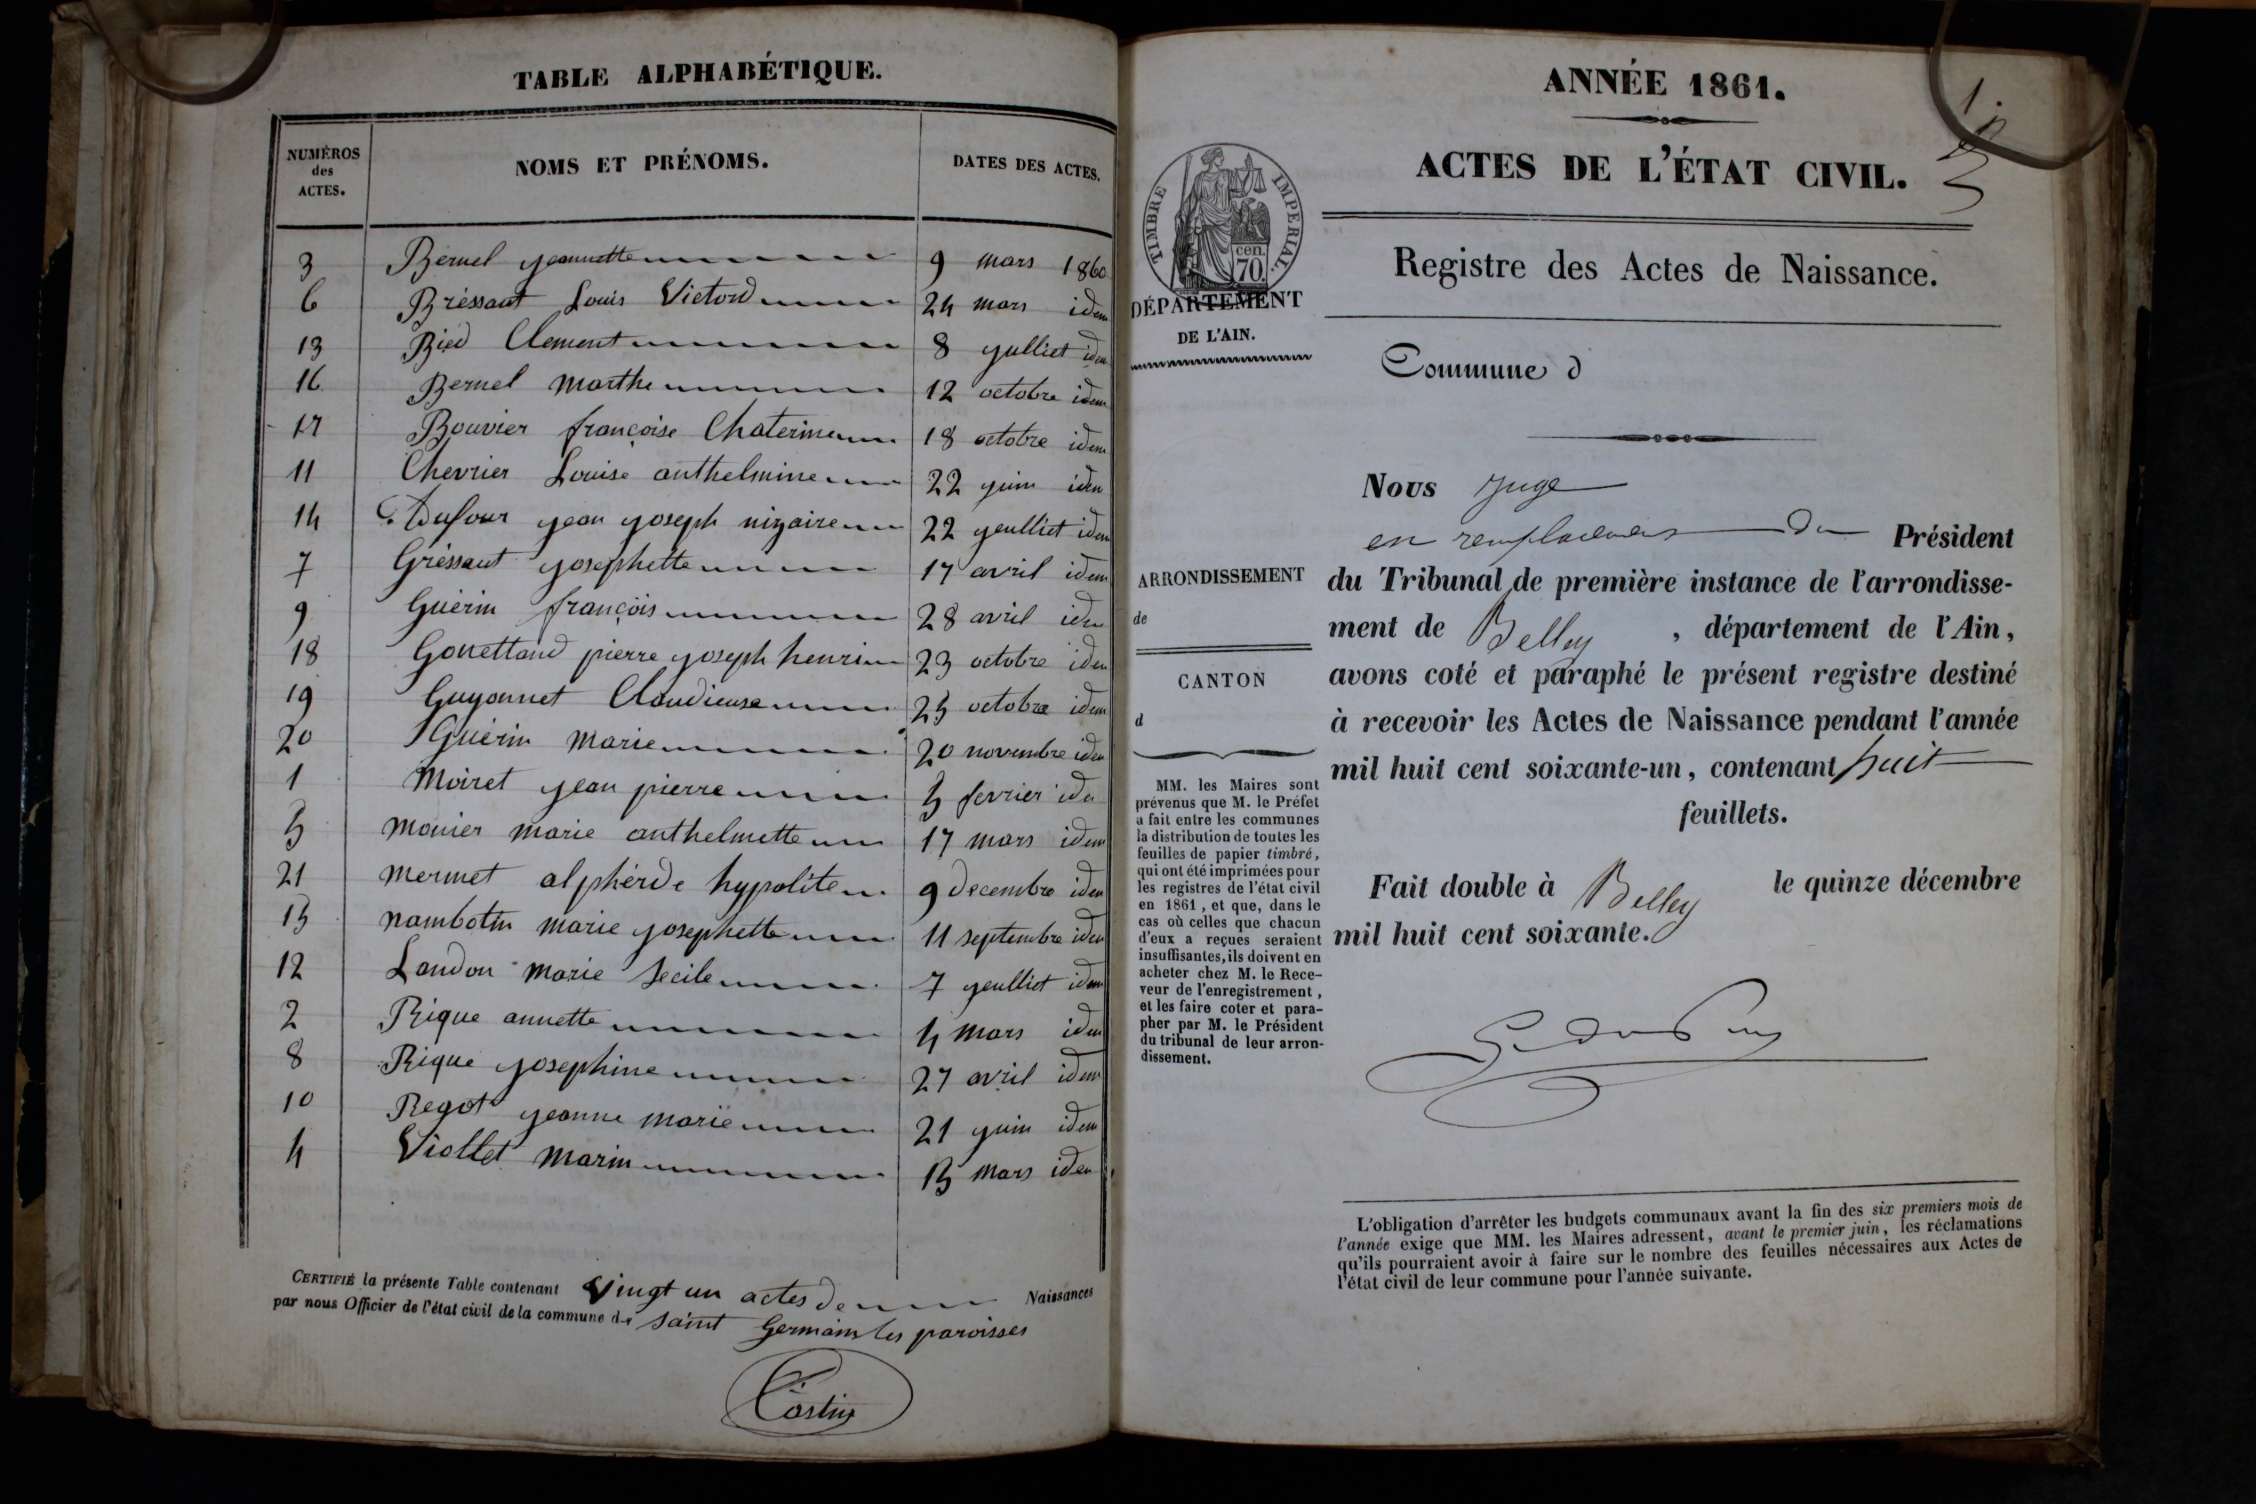 TABLE ALPHABÉTIQUE.
NUMÉROS des ACTES. NOMS ET PRÉNOMS. DATES DES ACTES.
3 Bernel yeannette 9 mars 1860
6 Bréssaut Louis Victord 24 mars idem
13 Bied Clement 8 yulliet idem
16 Bernel marthe 12 octobre idem
17 Bouvier françoise Chaterine 18 octobre idem
11 Chevrier Louise anthelmine 22 yuin idem
14 Dufour yean yoseph nizaire 22 yeulliet idem
7 Gréssaut yosephette 17 avril idem
9 Guérin françois 28 avril idem
18 Gouettand pierre yoseph henri 23 octobre idem
19 Guyonnet Claudieuse 25 octobre idem
20 Guérin marie 20 novembre idem
1 Moiret yean pierre 5 fevrier idem
5 monier marie anthelmette 17 mars idem
21 mermet alphérde hypolite 9 decembre idem
15 nambotin marie yosephette 11 septembre idem
12 Landon marie Secile 7 yeulliet idem
2 Rique annette 4 mars idem
8 Rique yosephine 27 avril idem
10 Regot yeanne marie 21 yuin idem
4 Viollet marin 15 mars idem
CERTIFIÉ la présente Table contenant vingt un actes de Naissances
par nous Officier de l'état civil de la commune de saint Germain les paroisses
ANNÉE 1861.
1.
ACTES DE L'ÉTAT CIVIL.
TIMBRE IMPERIAL.
cen.
70.
Registre des Actes de Naissance.
DÉPARTEMENT
DE L'AIN.
Commune d
Nous Juge
en remplacement du Président
ARRONDISSEMENT
de
CANTON
d
du Tribunal de première instance de l'arrondisse-
ment de Belley, département de l'Ain,
avons coté et paraphé le présent registre destiné
à recevoir les Actes de Naissance pendant l'année
mil huit cent soixante-un, contenant huit
feuillets.
Fait double à Belley le quinze décembre
mil huit cent soixante.
MM. les Maires sont
prévenus que M. le Préfet
a fait entre les communes
la distribution de toutes les
feuilles de papier timbré,
qui ont été imprimées pour
les registres de l'état civil
en 1861, et que, dans le
cas où celles que chacun
d'eux a reçues seraient
insuffisantes, ils doivent en
acheter chez M. le Rece-
veur de l'enregistrement,
et les faire coter et para-
pher par M. le Président
du tribunal de leur arron-
dissement.
L'obligation d'arrêter les budgets communaux avant la fin des six premiers mois de
l'année exige que MM. les Maires adressent, avant le premier juin, les réclamations
qu'ils pourraient avoir à faire sur le nombre des feuilles nécessaires aux Actes de
l'état civil de leur commune pour l'année suivante.